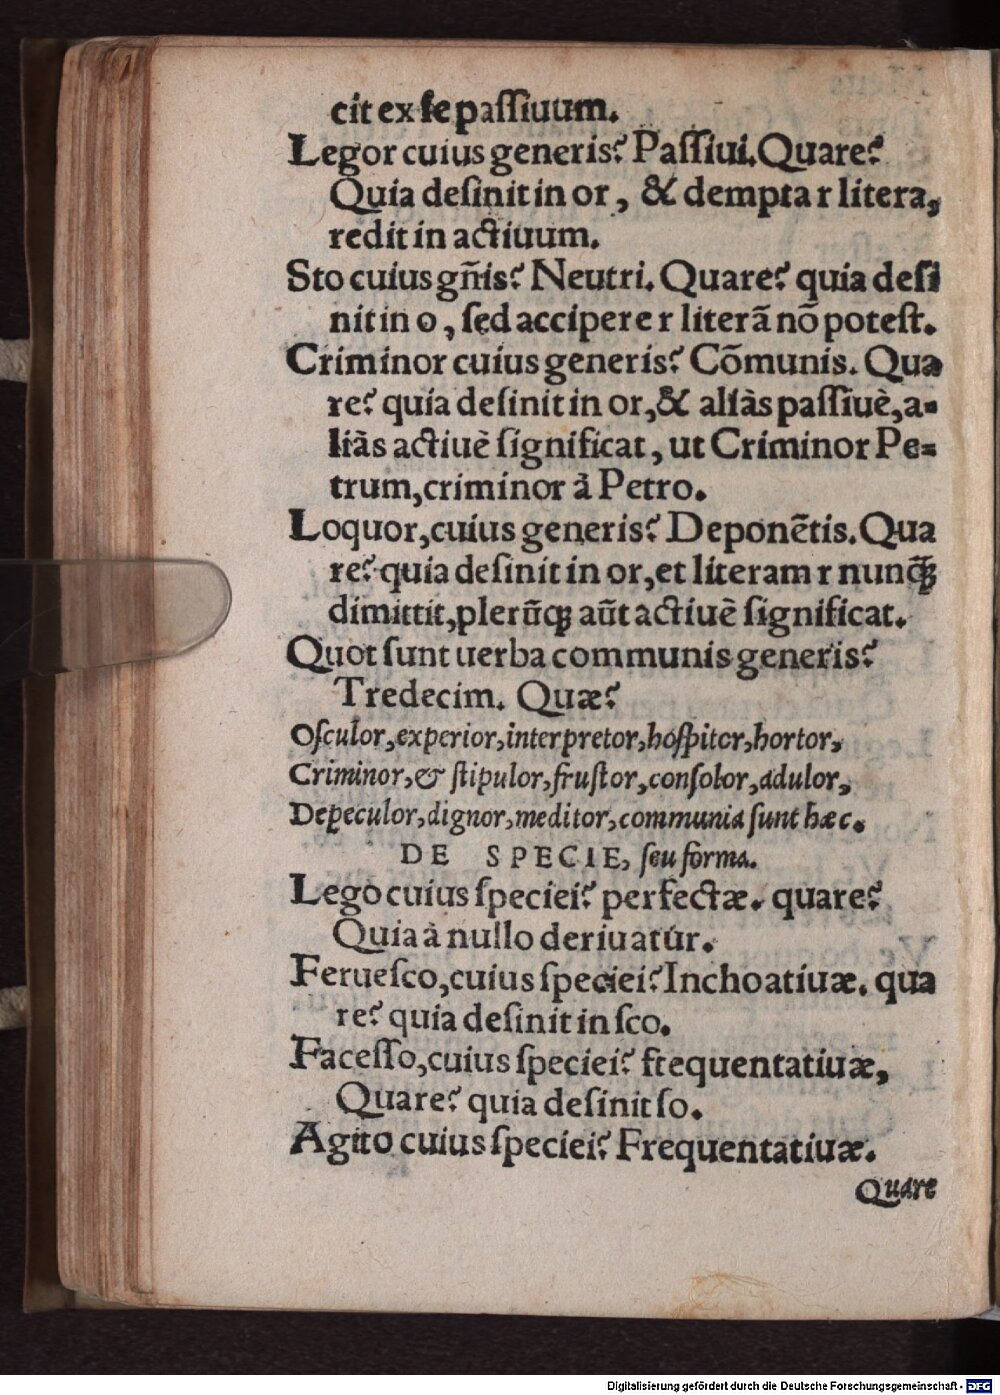 cit ex se paſſiuum.
Legor cuius generis? Paſſiui. Quare?
Quia deſinit in or, & dempta r litera,
redit in actiuum.
Sto cuius gñis? Neutri. Quare? quia deſi
nit in o, ſed accipere r literã nõ poteſt.
Criminor cuius generis? Cõmunis. Qua
re? quia deſinit in or, & aliàs paſſiuè, a-
liàs actiuè ſignificat, ut Criminor Pe-
trum, criminor à Petro.
Loquor, cuius generis? Deponẽtis. Qua
re? quia deſinit in or, et literam r nunq̃ꝫ
dimittit, plerũqꝫ aũt actiuè ſignificat.
Quot ſunt uerba communis generis?
Tredecim. Quæ?
Oſculor, experior, interpretor, hoſpitor, hortor,
Criminor, & ſtipulor, fruſtor, conſolor, adulor,
Depeculor, dignor, meditor, communia ſunt hæc.
DE SPECIE, ſeu forma.
Lego cuius ſpeciei? perfectæ. quare?
Quia à nullo deriuatur.
Ferueſco, cuius ſpeciei? Inchoatiuæ. qua
re? quia deſinit in ſco.
Faceſſo, cuius ſpeciei? frequentatiuæ,
Quare? quia deſinit ſo.
Agito cuius ſpeciei? Frequentatiuæ.
Quare
Digitalisierung gefördert durch die Deutsche Forschungsgemeinschaft - DFG